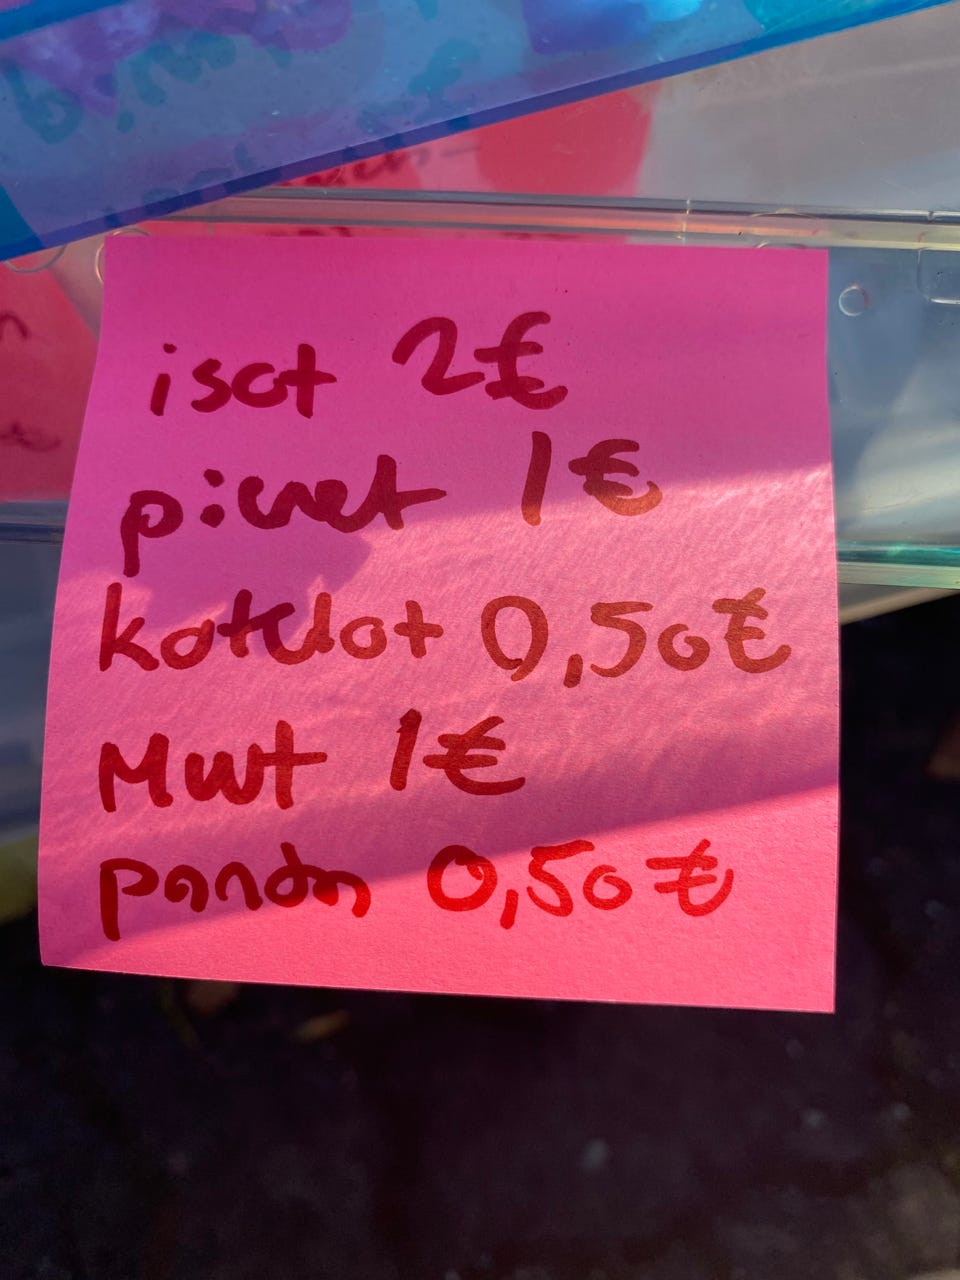 isot 2€
pienet 1€
katelot 0,50€
Muut 1€
panda 0,50€